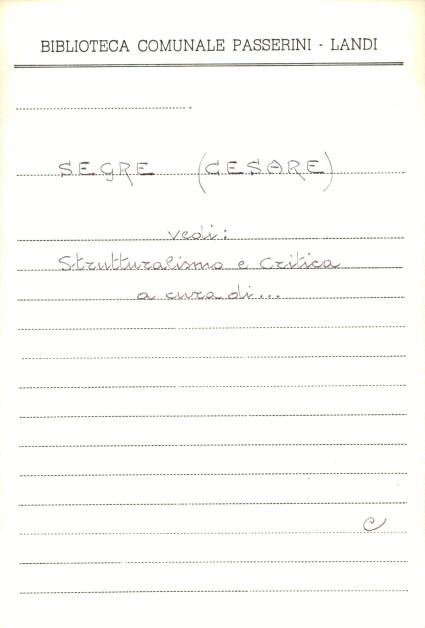 BIBLIOTECA COMUNALE PASSERINI - LANDI
SEGRE (CESARE)
vedi:
Strutturalismo e Critica
a cura di...
C